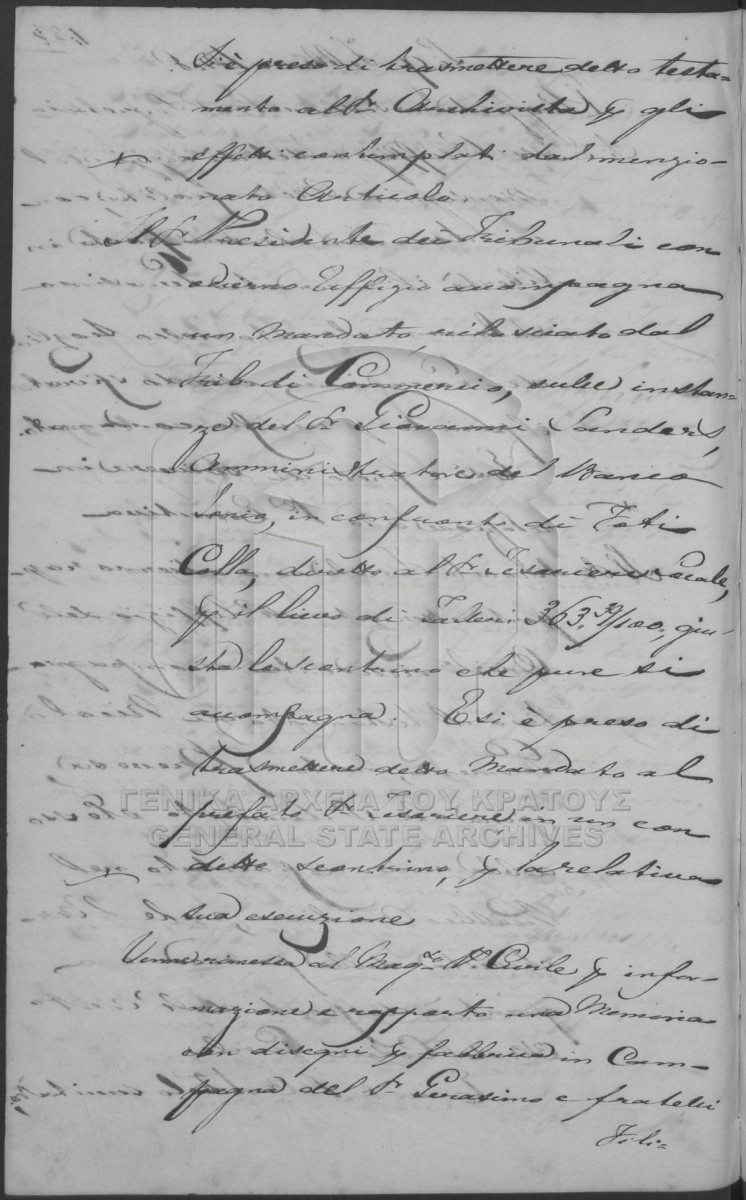 Si è preso di trasmettere detto testa-
mento al Sr. Archivista p gli
effetti contemplati dal menzio-
nato Articolo
Il Sr. Presidente dei Tribunali con
odierno Uffizio accompagna
un mandato, rilasciato dal
Trib. di Commercio, sulle instan-
ze del Sr. Giovanni Sanders,
Amministratore del Banco
Jonio, in confronto di Foti
Colla, diretto al Sr. Tesoriere Locale,
p il lievo di Talleri 363.39/100, giu-
sta lo scontrino che pure si
accompagna. E si è preso di
trasmettere detto Mandato al
prefato Sr. Tesoriere, in un con
detto scontrino, p la relativa
sua esecuzione
ΓΕΝΙΚΑ ΑΡΧΕΙΑ ΤΟΥ ΚΡΑΤΟΥΣ
GENERAL STATE ARCHIVES
Venne rimessa al Mag.to Pr. Civile p infor-
mazione e rapporto una Memoria
con disegni p fabbrica in Cam-
pagna del Sr. Gerasimo e fratelli
Fili=